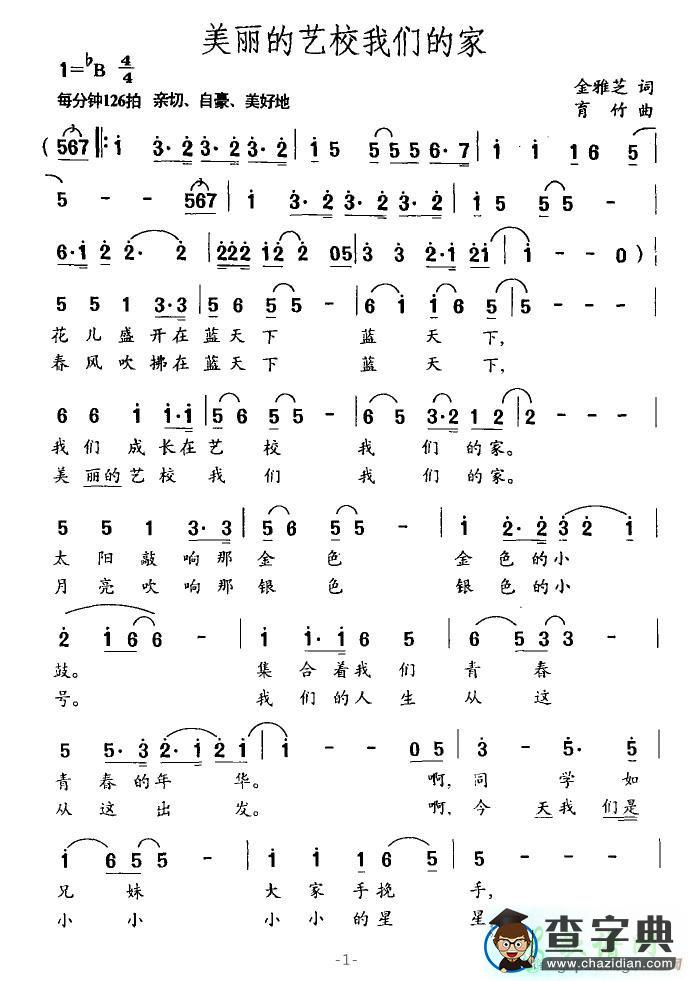 美丽的艺校我们的家
1=♭B 4/4
金雅芝 词
每分钟126拍 亲切、自豪、美好地
育竹 曲
( 567 |: 1 3·2 3·2 3·2 | 1 5 5 5 5 6·7 | 1 1 1 6 5 |
5 - - 567 | 1 3·2 3·2 3·2 | 1 5 5 5 - |
6·1 2 2· 2 | 222 12 2 05 | 3 3 2·1 21 | 1 - - 0 ) |
5 5 1 3·3 | 5 6 5 5 - | 6 1 1 6 5 | 5 - - - |
花儿盛开在蓝天下 蓝天下,
春风吹拂在蓝天下 蓝天下,
6 6 1 1·1 | 5 6 5 5 - | 6 6 3·2 1 2 | 2 - - - |
我们成长在艺校 我们的家。
美丽的艺校我们 我们的家。
5 5 1 3·3 | 5 6 5 5 - | 1 2·2 3 2 1 |
太阳敲响那金色 金色的小
月亮吹响那银色 银色的小
2 1 6 6 - | 1 1·1 1 5 | 6 5 3 3 - |
鼓。 集合着我们青春
号。 我们的人生从这
5 5·3 2·1 2 1 | 1 - - 0 5 | 3 - 5· 5 |
青春的年华。 啊,同学如
从这出发。 啊,今天我们是
1 6 5 5 - | 1 1 1 6 5 | 5 - - - |
兄妹 大家手挽手,
小小 小小的星星
-1-
查字典
www.chazidian.com